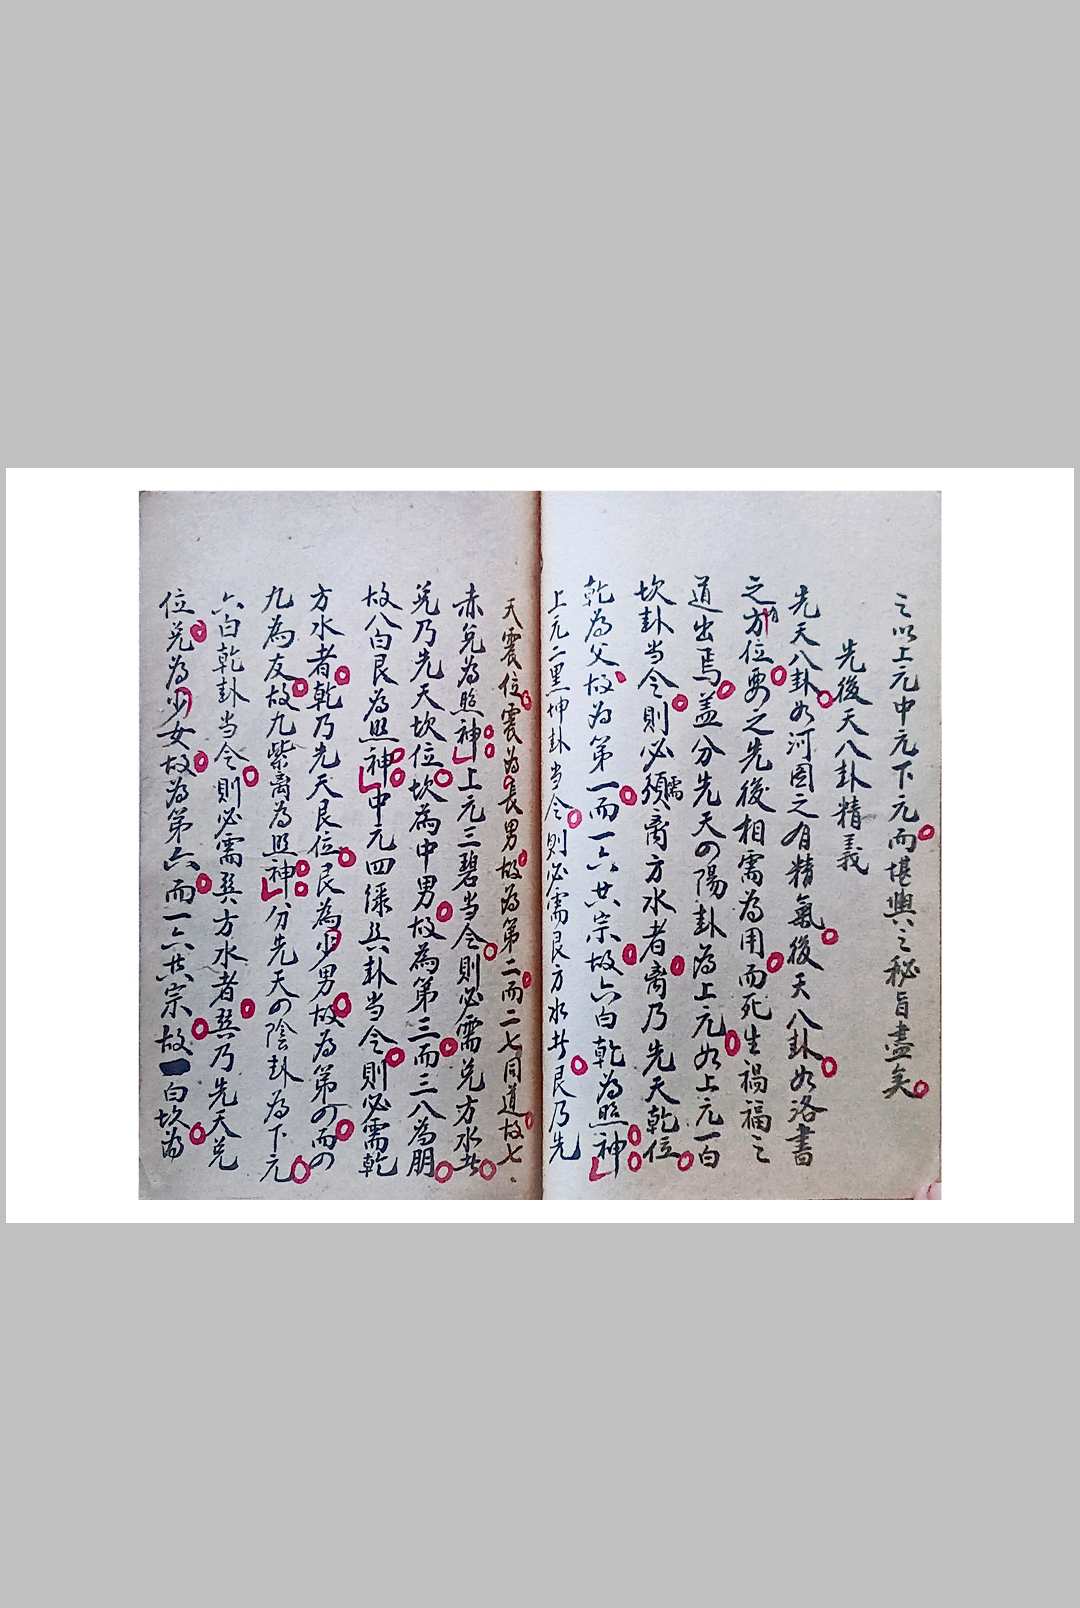 之以上元中元下元而堪輿之秘旨盡矣
先後天八卦精義
先天八卦如河图之有精氣後天八卦如洛書
之有方位要之先後相需為用而死生禍福之
道出焉盖分先天の陽卦為上元如上元一白
坎卦当令則必需离方水者离乃先天乾位
乾為父故為第一而一六共宗故六白乾為照神
上元二黑坤卦当令則必需艮方水者艮乃先
天震位震為長男故為第二而二七同道故七
赤兌為照神上元三碧当令則必需兌方水者
兌乃先天坎位坎為中男故為第三而三八為朋
故八白艮為照神中元四绿巽卦当令則必需乾
方水者乾乃先天艮位艮為少男故為第の而の
九為友故九紫离為照神分先天の陰卦為下元
六白乾卦当令則必需巽方水者巽乃先天兌
位兌為少女故為第六而一六共宗故一白坎為